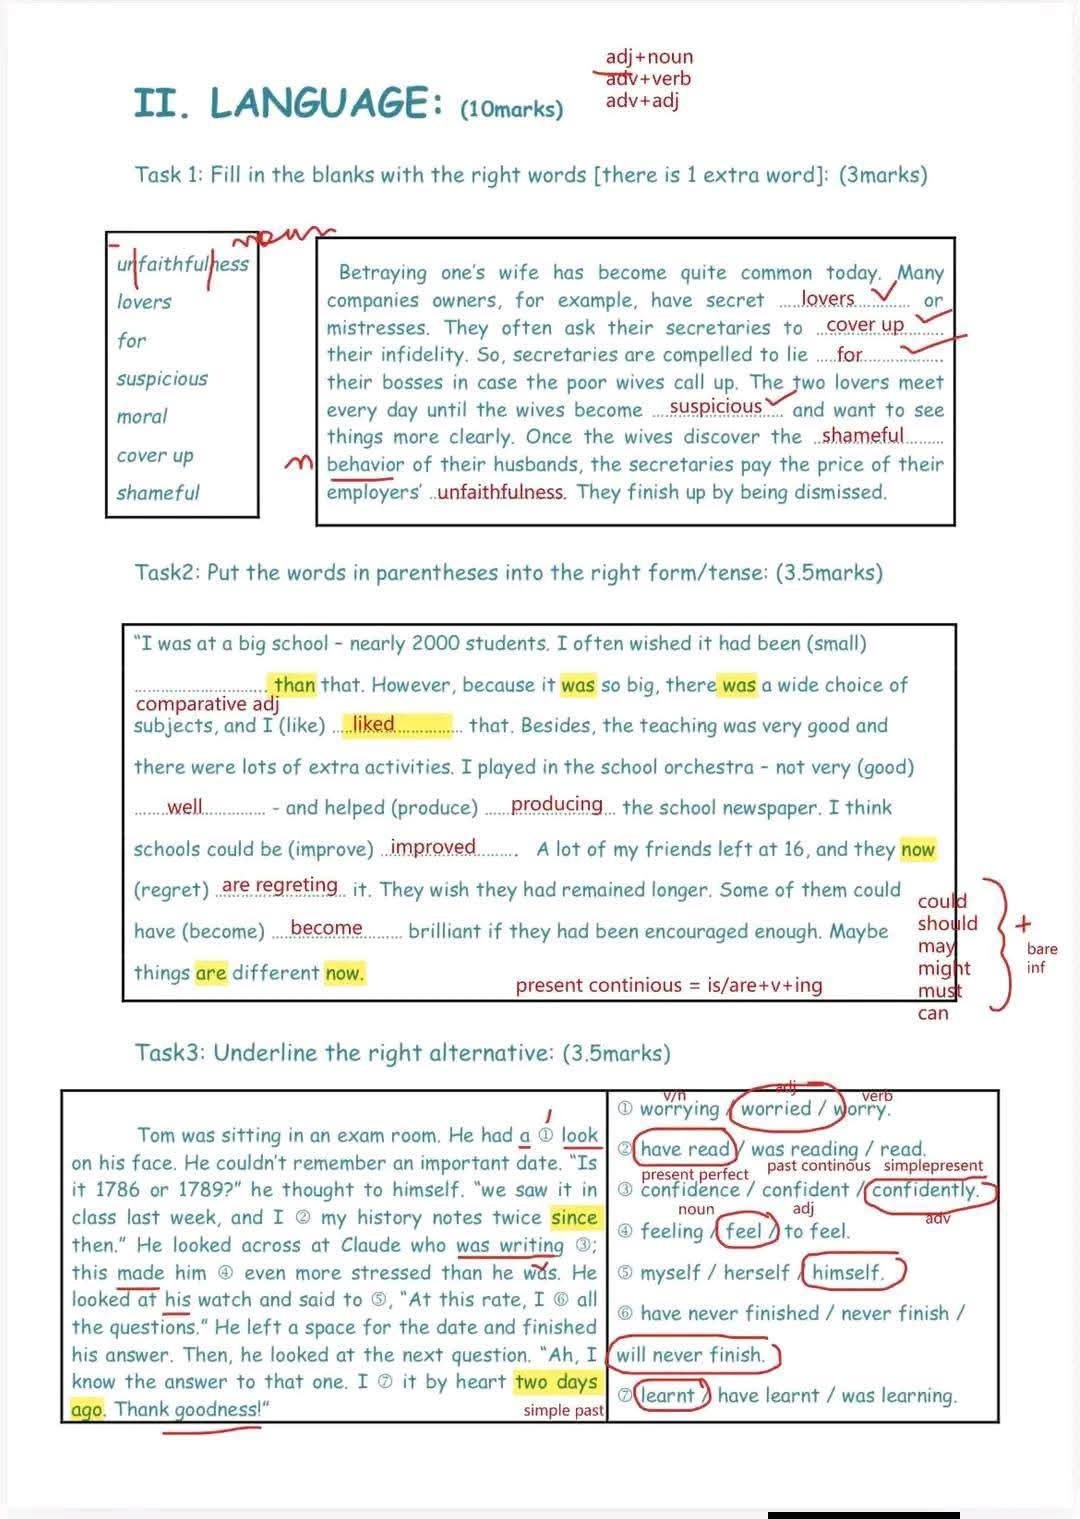 adj+noun
adv+verb
adv+adj
II. LANGUAGE: (10marks)
Task 1: Fill in the blanks with the right words [there is 1 extra word]: (3marks)
noun
unfaithfulness
lovers
for
suspicious
moral
cover up
shameful
Betraying one's wife has become quite common today. Many
companies owners, for example, have secret ....lovers............ or
mistresses. They often ask their secretaries to ..cover up........
their infidelity. So, secretaries are compelled to lie ....for................
their bosses in case the poor wives call up. The two lovers meet
every day until the wives become ....suspicious..... and want to see
things more clearly. Once the wives discover the ..shameful........
n
behavior of their husbands, the secretaries pay the price of their
employers' ..unfaithfulness. They finish up by being dismissed.
Task2: Put the words in parentheses into the right form/tense: (3.5marks)
"I was at a big school – nearly 2000 students. I often wished it had been (small)
............................ than that. However, because it was so big, there was a wide choice of
comparative adj
subjects, and I (like) ....liked.................. that. Besides, the teaching was very good and
there were lots of extra activities. I played in the school orchestra – not very (good)
.......well.............. - and helped (produce) ......producing... the school newspaper. I think
schools could be (improve) ..improved......... A lot of my friends left at 16, and they now
(regret) ..are regreting.. it. They wish they had remained longer. Some of them could
have (become) ....become......... brilliant if they had been encouraged enough. Maybe
things are different now.
present continious = is/are+v+ing
could
should
may
might
must
can
+
bare
inf
Task3: Underline the right alternative: (3.5marks)
Tom was sitting in an exam room. He had a ① look
on his face. He couldn't remember an important date. "Is
it 1786 or 1789?" he thought to himself. "we saw it in
class last week, and I ② my history notes twice since
then." He looked across at Claude who was writing ③;
this made him ④ even more stressed than he was. He
looked at his watch and said to ⑤, "At this rate, I ⑥ all
the questions." He left a space for the date and finished
his answer. Then, he looked at the next question. "Ah, I
know the answer to that one. I ⑦ it by heart two days
ago. Thank goodness!"
simple past
v/n adj verb
① worrying / worried / worry.
② have read / was reading / read.
present perfect past continous simplepresent
③ confidence / confident / confidently.
noun adj adv
④ feeling / feel / to feel.
⑤ myself / herself / himself.
⑥ have never finished / never finish /
will never finish.
⑦ learnt / have learnt / was learning.